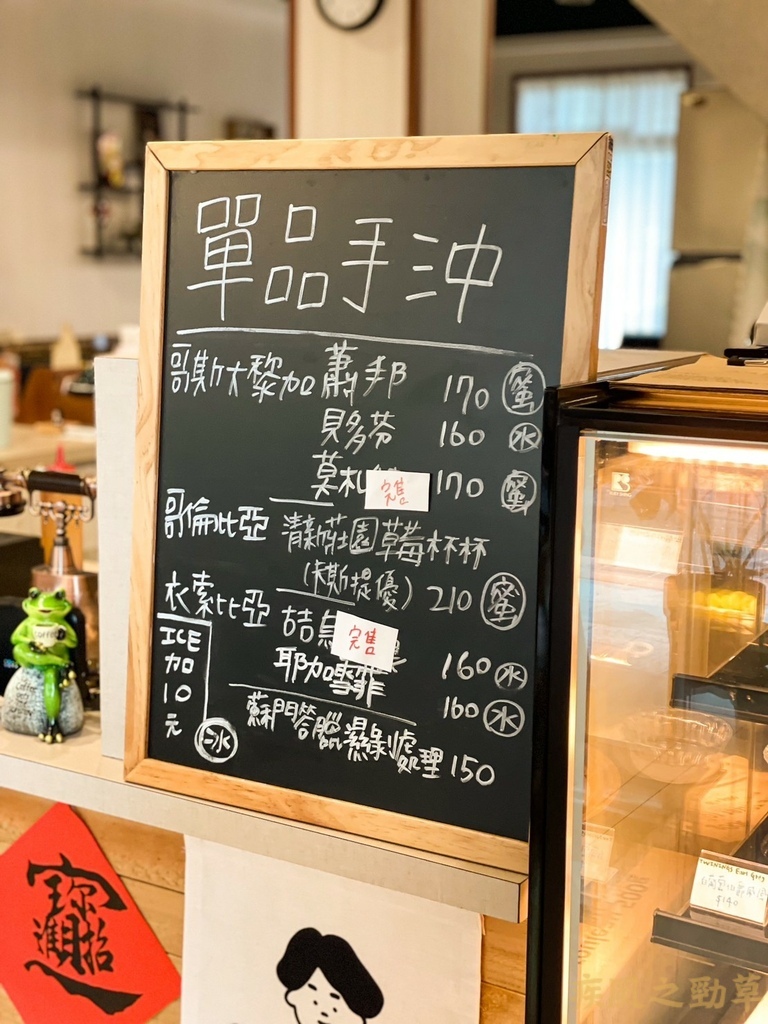 單品手沖
哥斯大黎加 蕭邦 170 蜜
貝多芬 160 水
莫札 完售 170 蜜
哥倫比亞 清新莊園草莓杯杯
(卡斯提優) 210 蜜
衣索比亞 完售 160 水
耶加雪菲 160 水
蘇門答臘濕綠處理 150
ICE
加
10
元
冰
COFFEE
招財進寶
$140
之勁草